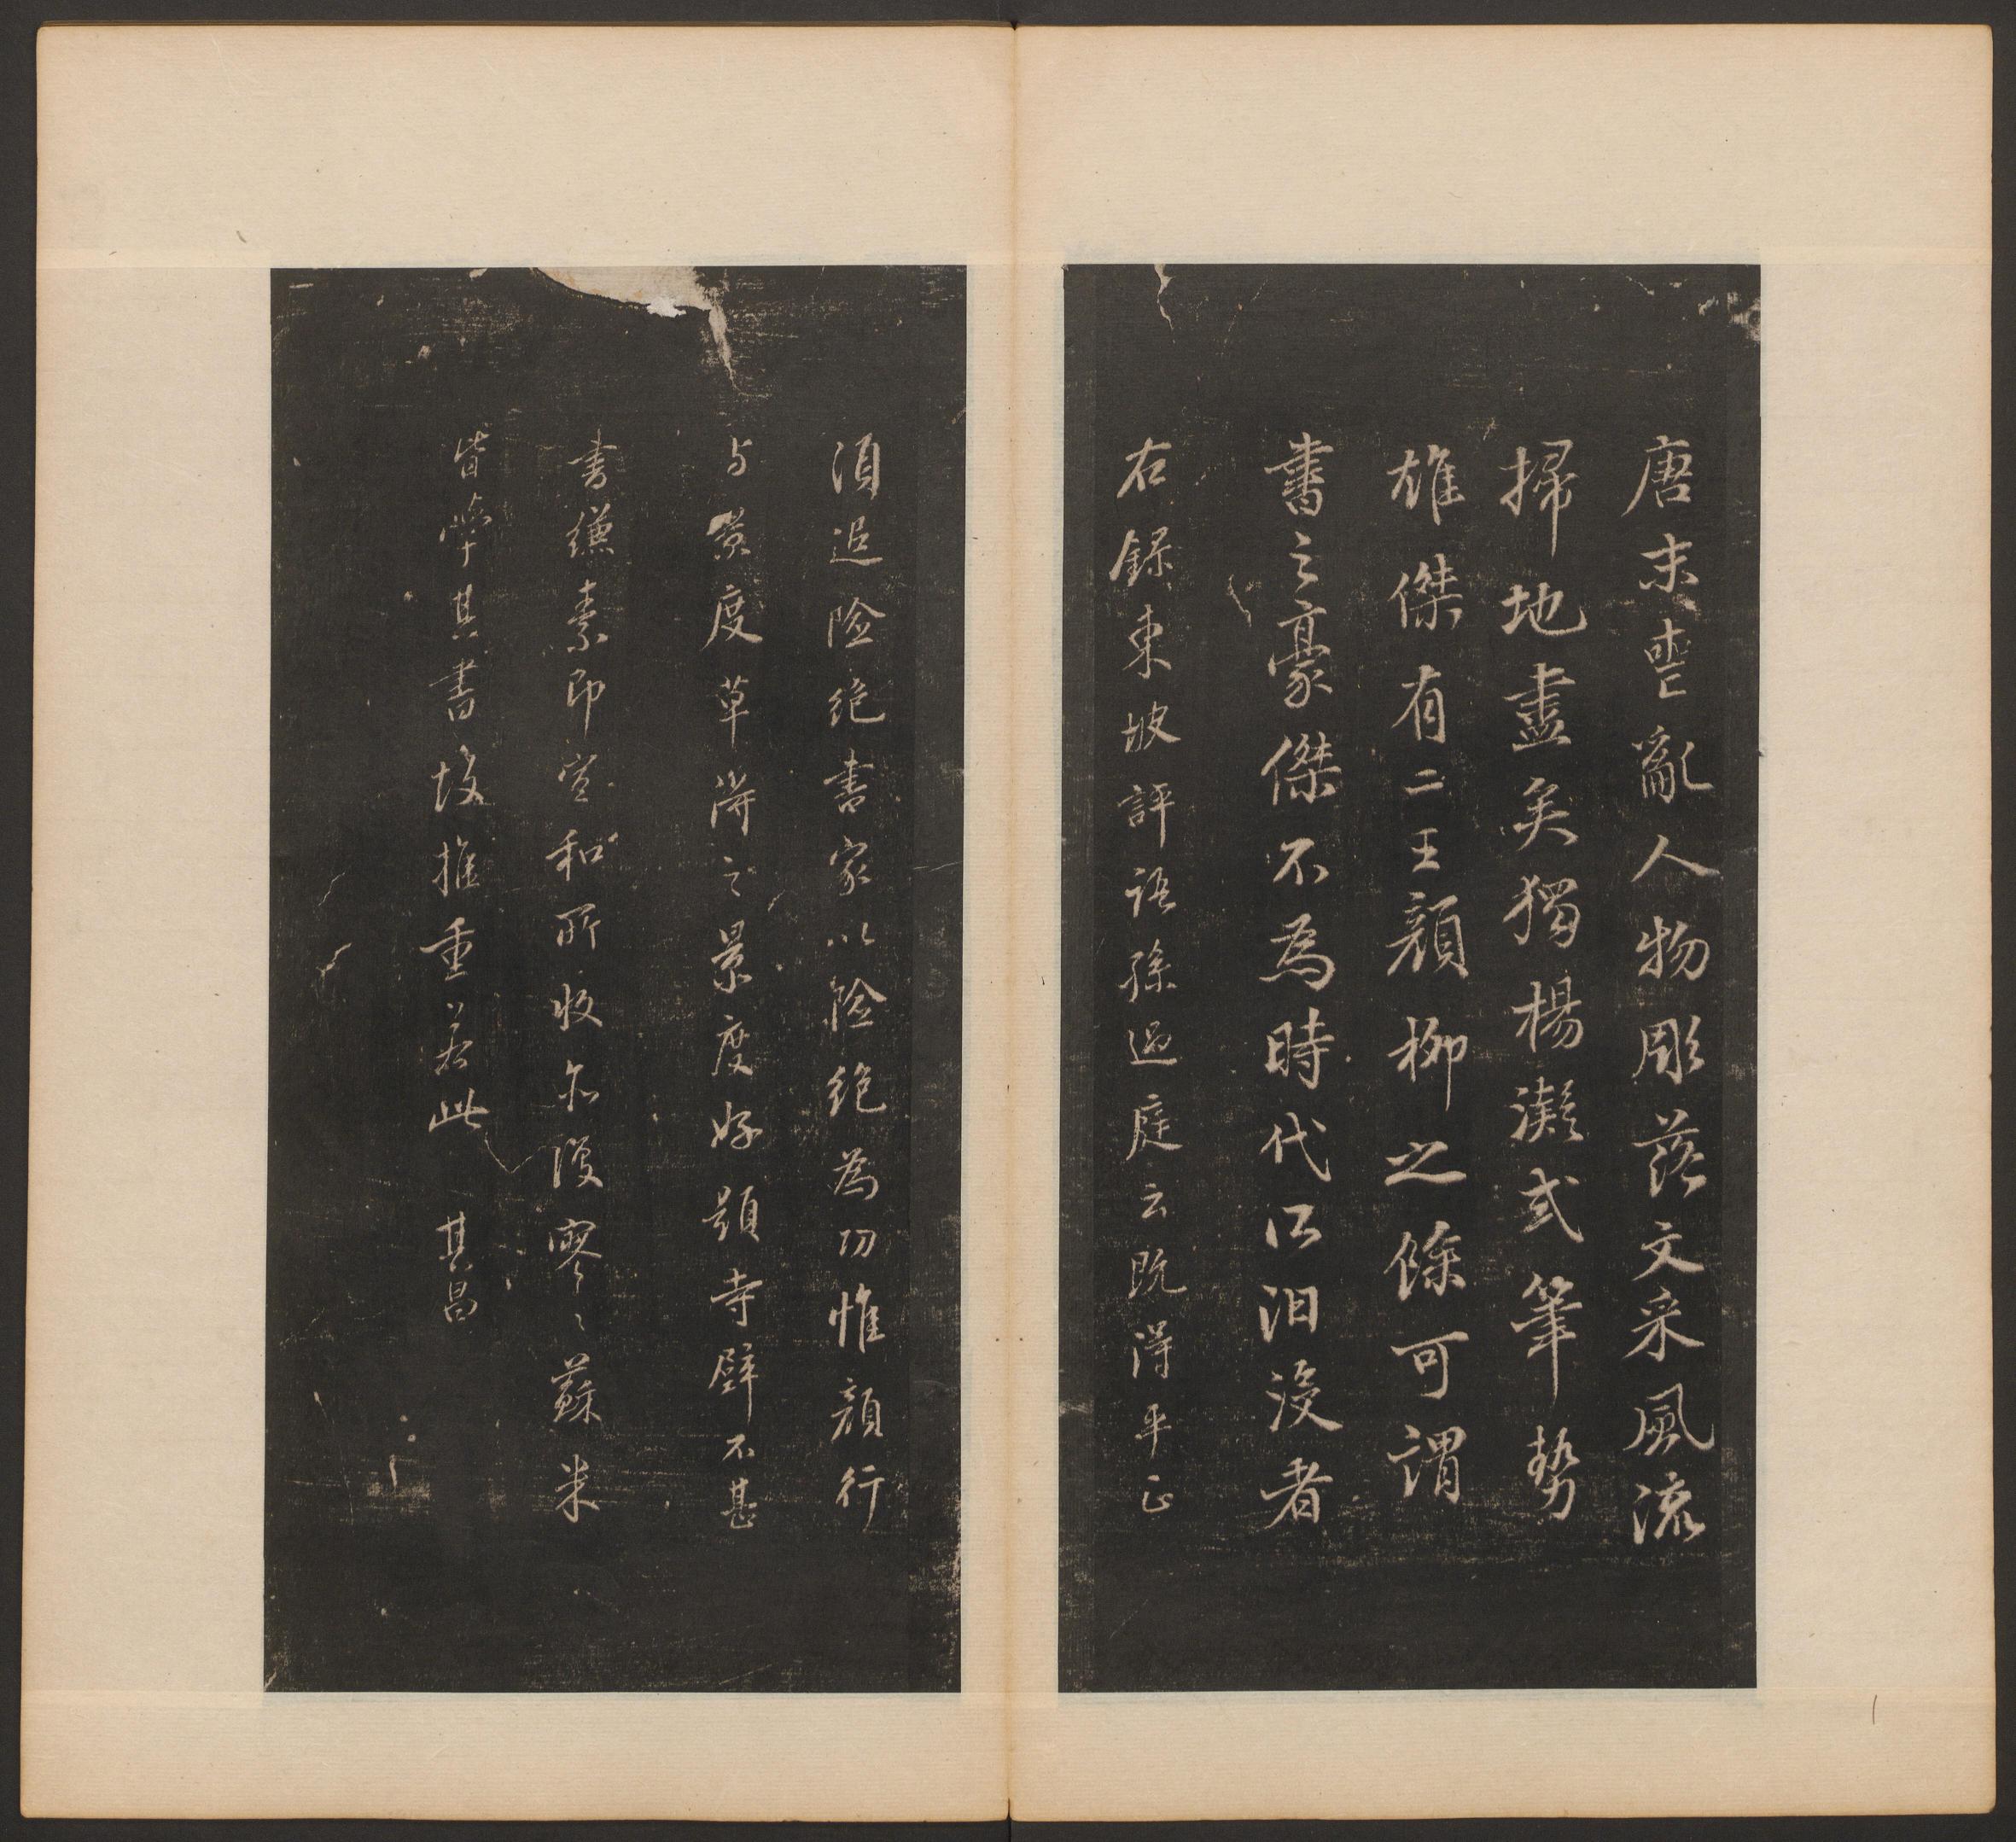 唐末喪亂人物彫落文采風流
掃地盡矣獨楊凝式筆勢
雄傑有二王顏柳之餘可謂
書之豪傑不為時代所汩沒者
右錄東坡評語孫過庭云既得平正
須追險絕書家以險絕為功惟顏行
与景度草得之景度好題寺壁不甚
書縑素即宣和所收亦復寥〻蘇米
皆學其書故推重若此 其昌